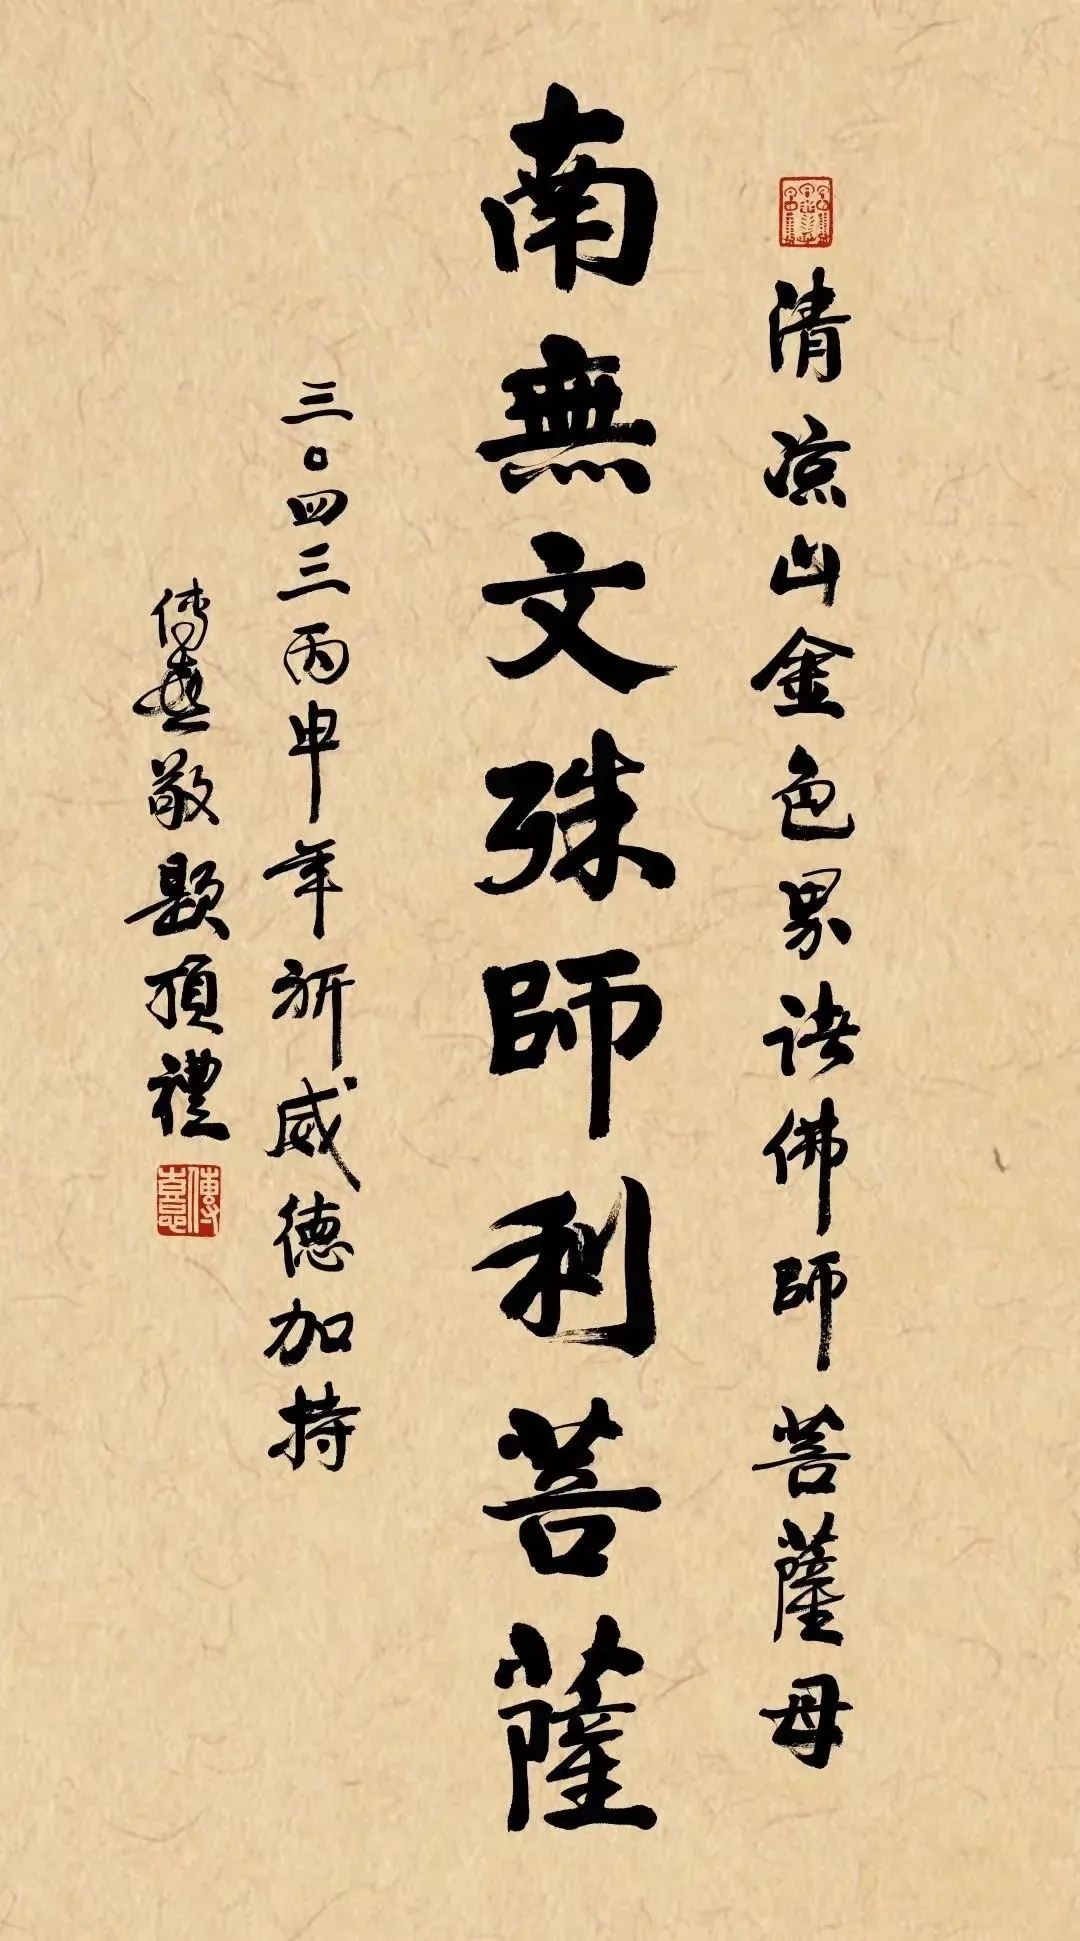 清凉山金色界诸佛師菩薩母
南無文殊師利菩薩
三〇四三丙申年祈威德加持
傳喜敬題頂禮
傳喜